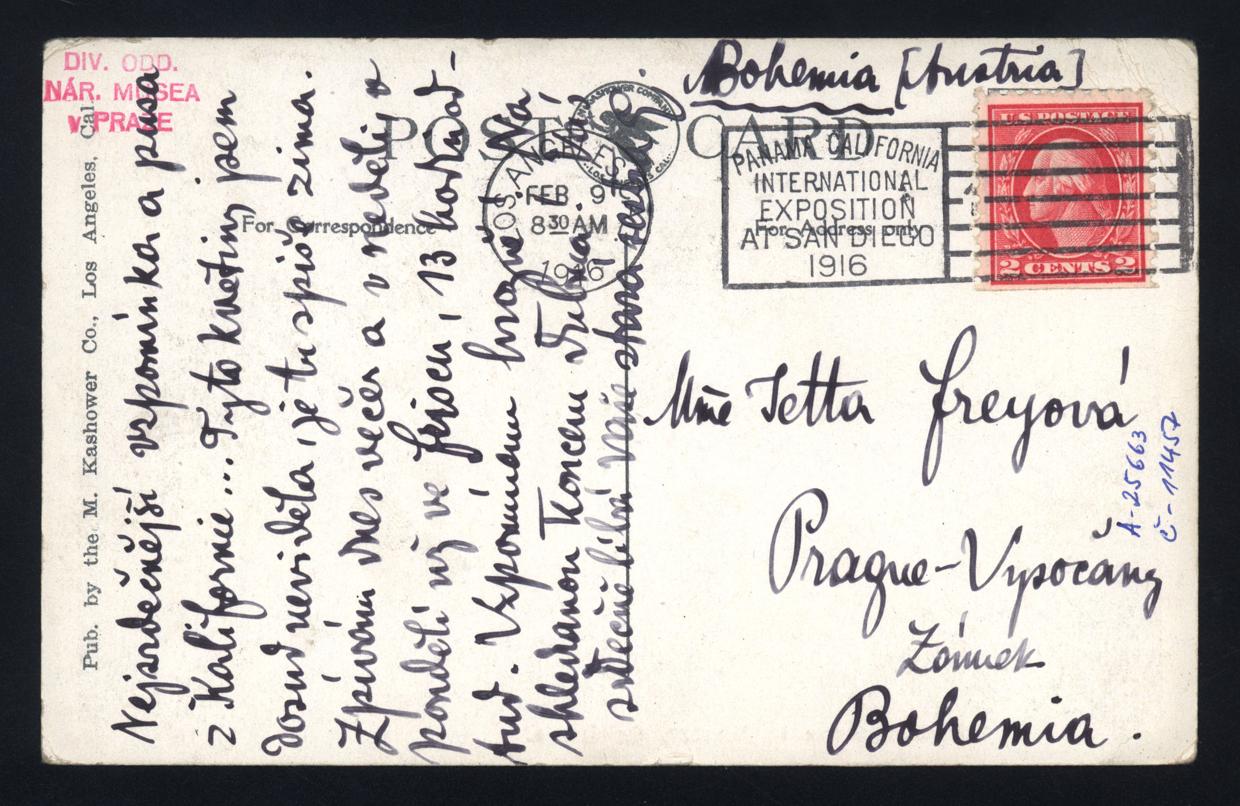 DIV. ODD.
NÁR. MUSEA
V PRAZE
Pub. by the M. Kashower Co., Los Angeles, Cal.
POST CARD
For Correspondence
For Address only
LOS ANGELES
FEB 9
8 30 AM
1916
PANAMA CALIFORNIA
INTERNATIONAL
EXPOSITION
AT SAN DIEGO
1916
U.S. POSTAGE
2 CENTS 2
Bohemia [Austria]
Nejsrdečnější vzpomínka a pusa
z Kalifornie... Tyto květiny jsem
dosud neviděla, je tu spíše zima.
Zpívám dnes večer a v neděli, v
pondělí už ve Friscu, 13 hodin od-
tud. Vzpomínám hrozně. Na
shledanou koncem dubna.
srdečně líbá Vaše stará
Mme Jetta Freyová
Prague-Vysočany
Zámek
Bohemia.
A-25663
Č-11457